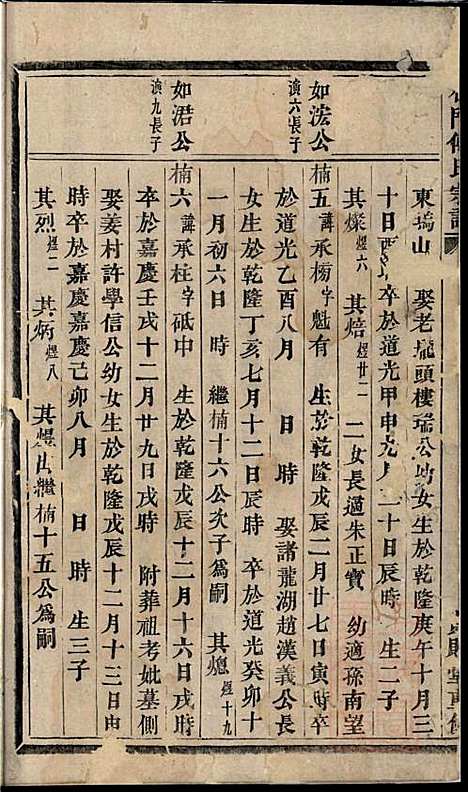 東塢山 娶老壠頭樓瑞公幼女生於乾隆庚午十月三
十日 卒於道光甲申九月 十日辰時 生二子
其燦煜六 其焙煜廿二 二女長適朱正寶 幼適孫南望
如法公
演六長子
楠五諱承榜字魁有 生於乾隆戊辰二月廿七日寅時卒
於道光乙酉八月 日 時 娶諸龍湖趙漢義公長
女生於乾隆丁亥七月十二日辰時 卒於道光癸卯十
一月初六日 時 繼楠十六公次子爲嗣 其熜煜十九
如涒公
演九長子
楠六諱承柱字砥中 生於乾隆戊辰十二月十六日戌時
卒於嘉慶壬戌十二月廿九日戌時 附葬祖考妣墓側
娶姜村許學信公幼女生於乾隆戊辰十二月十三日由
時卒於嘉慶嘉慶己卯八月 日 時 生三子
其烈煜二 其炳煜八 其煜出繼楠十五公爲嗣